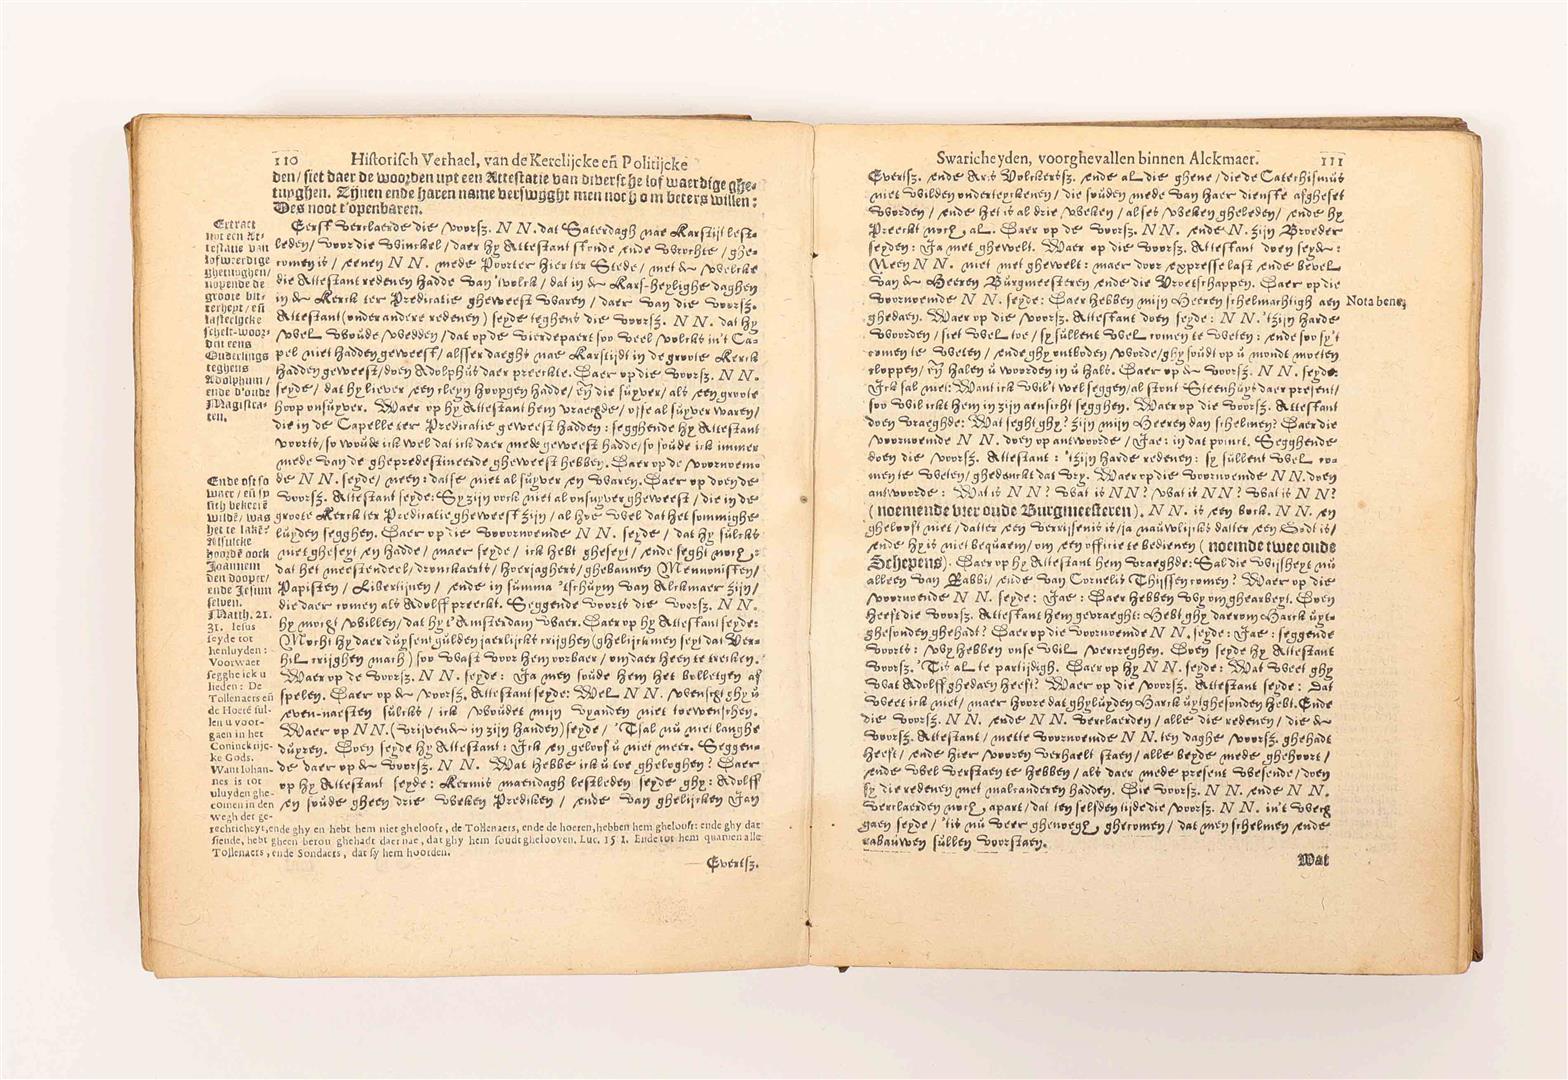 110 Historisch Verhael, van de Kerclijcke eñ Politijcke
den/ siet daer de woorden upt een Attestatie van diversche lofwaerdige ghe-
tuyghen. Zijnen ende haren name verswyght men noch om beters willen:
Des noot t'openbaren.
Extract
uyt een At-
testatie van
lofweerdige
ghetuyghen/
nopende de
groote bit-
terheyt/ eñ
lasterlijcke
schelt-woor-
den eens
Ouderlings
teghens
Adolphum/
ende d'oude
Magistra-
ten.
Ende ost so
waer/ en sy
sich bekeert
wilde/ was
het te laken
Alsulcke
hoorde oock
Joannem
den dooper/
ende Jesum
selven.
Matth. 21.
31. Iesus
seyde tot
henluyden:
Voorwaer
segghe ick u
lieden: De
Tollenaers eñ
de Hoerē sul-
len u voor-
gaen in het
Coninckrije-
ke Gods.
Want Iohan-
nes is tot
uluyden ghe-
comen in den
wegh der ge-
Eerst verclaerde die voorsz. NN. dat Saterdagh nae Karstijt lest-
leden/ voor die winckel/ daer hy Attestant stonde ende wrochte/ ghe-
comen is/ eenen NN. mede Poorter hier ter Stede/ met de welcke
die Attestant redenen hadde van 'tvolck/ dat in de Kars-heylighe daghen
in de Kerck ter Predicatie gheweest waren/ daer van die voorsz.
Attestant (onder andere redenen) seyde teghens die voorsz. NN. dat hy
wel woude wedden/ dat op de vierdepaert soo veel volcks in't Ca-
pel niet hadden geweest/ alsser daeghs nae Karstijdt in de groote Kerck
hadden geweest/ doen Adolphus daer preeckte. Daer op die voorsz. NN.
seyde/ dat hy liever een cleyn hoopgen hadde/ eñ die suyver/ als een groote
hoop onsuyver. Waer op hy Attestant hem vraeghde/ ofse al suyver waren/
die in de Capelle ter Predicatie geweest hadden: segghende hy Attestant
voorts/ so woude ick wel dat ick daer mede geweest hadde/ so soude ick immer
mede van de ghepredestineerde gheweest hebben. Daer op de voornoem-
de NN. seyde/ neen: datse niet al suyver en waren. Daer op doen de
voorsz. Attestant seyde: Sy zijn oock niet al onsuyver gheweest/ die in de
groote Kerck ter Predicatie gheweest zijn/ al hoe wel dat het sommighe
luyden segghen. Daer op die voornoemde NN. seyde/ dat hy sulcks
niet gheseyt en hadde/ maer seyde/ ick hebt gheseyt/ ende seght noch:
dat het meestendeel/ dronckaerts/ hoerjaghers/ ghebannen Mennonisten/
Papisten/ Libertijnen/ ende in summa 'tschuym van Alckmaer zijn/
die daer comen als Adolff preeckt. Seggende voorts die voorsz. NN.
hy mocht willen/ dat hy t'Amsterdam waer. Daer op hy Attestant seyde:
Mocht hy daer duysent gulden jaerlicks crijghen (ghelijck men seyt dat Ver-
hil crijghen mach) soo wast voor hem oorbaer/ om daer heen te trecken.
Waer op de voorsz. NN. seyde: Ja men soude hem het bolletgen af
spelen. Daer op de voorsz. Attestant seyde: Wel NN. wenscht ghy u
even-naesten sulcks/ ick woudet mijn vyanden niet toewenschen.
Waer op NN. (vrijvende in zijn handen) seyde/ 'Tsal nu niet langhe
duyren. Doen seyde hy Attestant: Ick en geloof u niet meer. Seggen-
de daer op de voorsz. NN. Wat hebbe ick u toe gheloghen? Daer
op hy Attestant seyde: Kermis maendagh lestleden seyde ghy: Adolff
en soude gheen drie weken Prediken/ ende van ghelijcken Jan
rechticheyt, ende ghy en hebt hem niet ghelooft, de Tollenaers, ende de hoeren, hebben hem ghelooft: ende ghy dat
siende, hebt gheen berou ghehadt daer nae, dat ghy hem soudt ghelooven. Luc. 15. 1. Ende tot hem quamen alle
Tollenaers, ende Sondaers, dat sy hem hoorden.
Evertsz.
Swaricheyden, voorghevallen binnen Alckmaer. 111
Evertsz. ende Aris Volckertsz. ende al die ghene/ die de Catechismus
niet wilden onderteyckenen/ die souden mede van haer dienste afgheset
worden/ ende het is al drie weken/ al ses weken gheleden/ ende hy
Preeckt noch al. Daer op de voorsz. NN. ende N. zijn Broeder
seyden: Ja met ghewelt. Waer op die voorsz. Attestant doen seyde:
Neen NN. niet met ghewelt: maer door expresse last ende bevel
van de Heeren Burgmeesteren ende die Vroetschappen. Daer op die
voornoemde NN. seyde: Daer hebben mijn Heeren schelmachtigh aen
ghedaen. Waer op die voorsz. Attestant doen seyde: NN. 'tzijn harde
woorden/ siet wel toe/ sy sullent wel comen te weten: ende soo sy't
comen te weten/ ende ghy ontboden worde/ ghy soudt op u mondt moeten
cloppen/ eñ halen u woorden in u hals. Daer op de voorsz. NN. seyde:
Ick sal niet: Want ick wil't wel seggen/ al stont Steenhuys daer present/
soo wil ickt hem in zijn aensicht segghen. Waer op die voorsz. Attestant
doen vraeghde: Wat seght ghy? zijn mijn Heeren dan schelmen? Daer die
voornoemde NN. doen op antwoorde/ Jae: in dat poinct. Segghende
doen die voorsz. Attestant: 'tzijn harde redenen: sy sullent wel co-
men te weten/ ghedenckt dat vry. Waer op die voornoemde NN. doen
antwoorde: Wat is NN? Wat is NN? Wat is NN? Wat is NN?
(noemende vier oude Burgmeesteren). NN. is een bock. NN. en
ghelooft niet/ datter een verrijsenis is/ ja nauwlijcks datter een Godt is/
ende hy is niet bequaem/ om een officie te bedienen (noemde twee oude
Schepens). Daer op hy Attestant hem vraeghde: Sal die wijsheyt nu
alleen van Rabbi/ ende van Cornelis Thijssen comen? Waer op die
voornoemde NN. seyde: Jae: Daer hebben wy om ghearbeyt. Doen
heeft die voorsz. Attestant hem gevraeght: Hebt ghy daerom Harck uyt-
ghesonden ghehadt? Daer op die voornoemde NN. seyde: Jae: seggende
voorts: wy hebben onse wil vercreghen. Doen seyde hy Attestant
voorsz. 'Tis al te partijdigh. Daer op hy NN. seyde: Wat weet ghy
wat Adolff ghedaen heeft? Waer op die voorsz. Attestant seyde: Dat
weet ick niet/ maer hoore dat ghyluyden Harck uytghesonden hebt. Ende
die voorsz. NN. ende NN. verclaerden/ alle die redenen/ die de
voorsz. Attestant/ mette voornoemde NN. ten daghe voorsz. ghehadt
heeft/ ende hier vooren verhaelt staen/ alle beyde mede ghehoort/
ende wel verstaen te hebben/ als daer mede present wesende/ doen
sy die redenen met malcanderen hadden. Die voorsz. NN. ende NN.
verclaerden noch apart/ dat ten selfden tijde die voorsz. NN. in't wech
gaen seyde/ 'tis nu veer ghenoegh ghecomen/ dat men schelmen ende
rabauwen sullen voorstaen.
Nota bene,
Wat